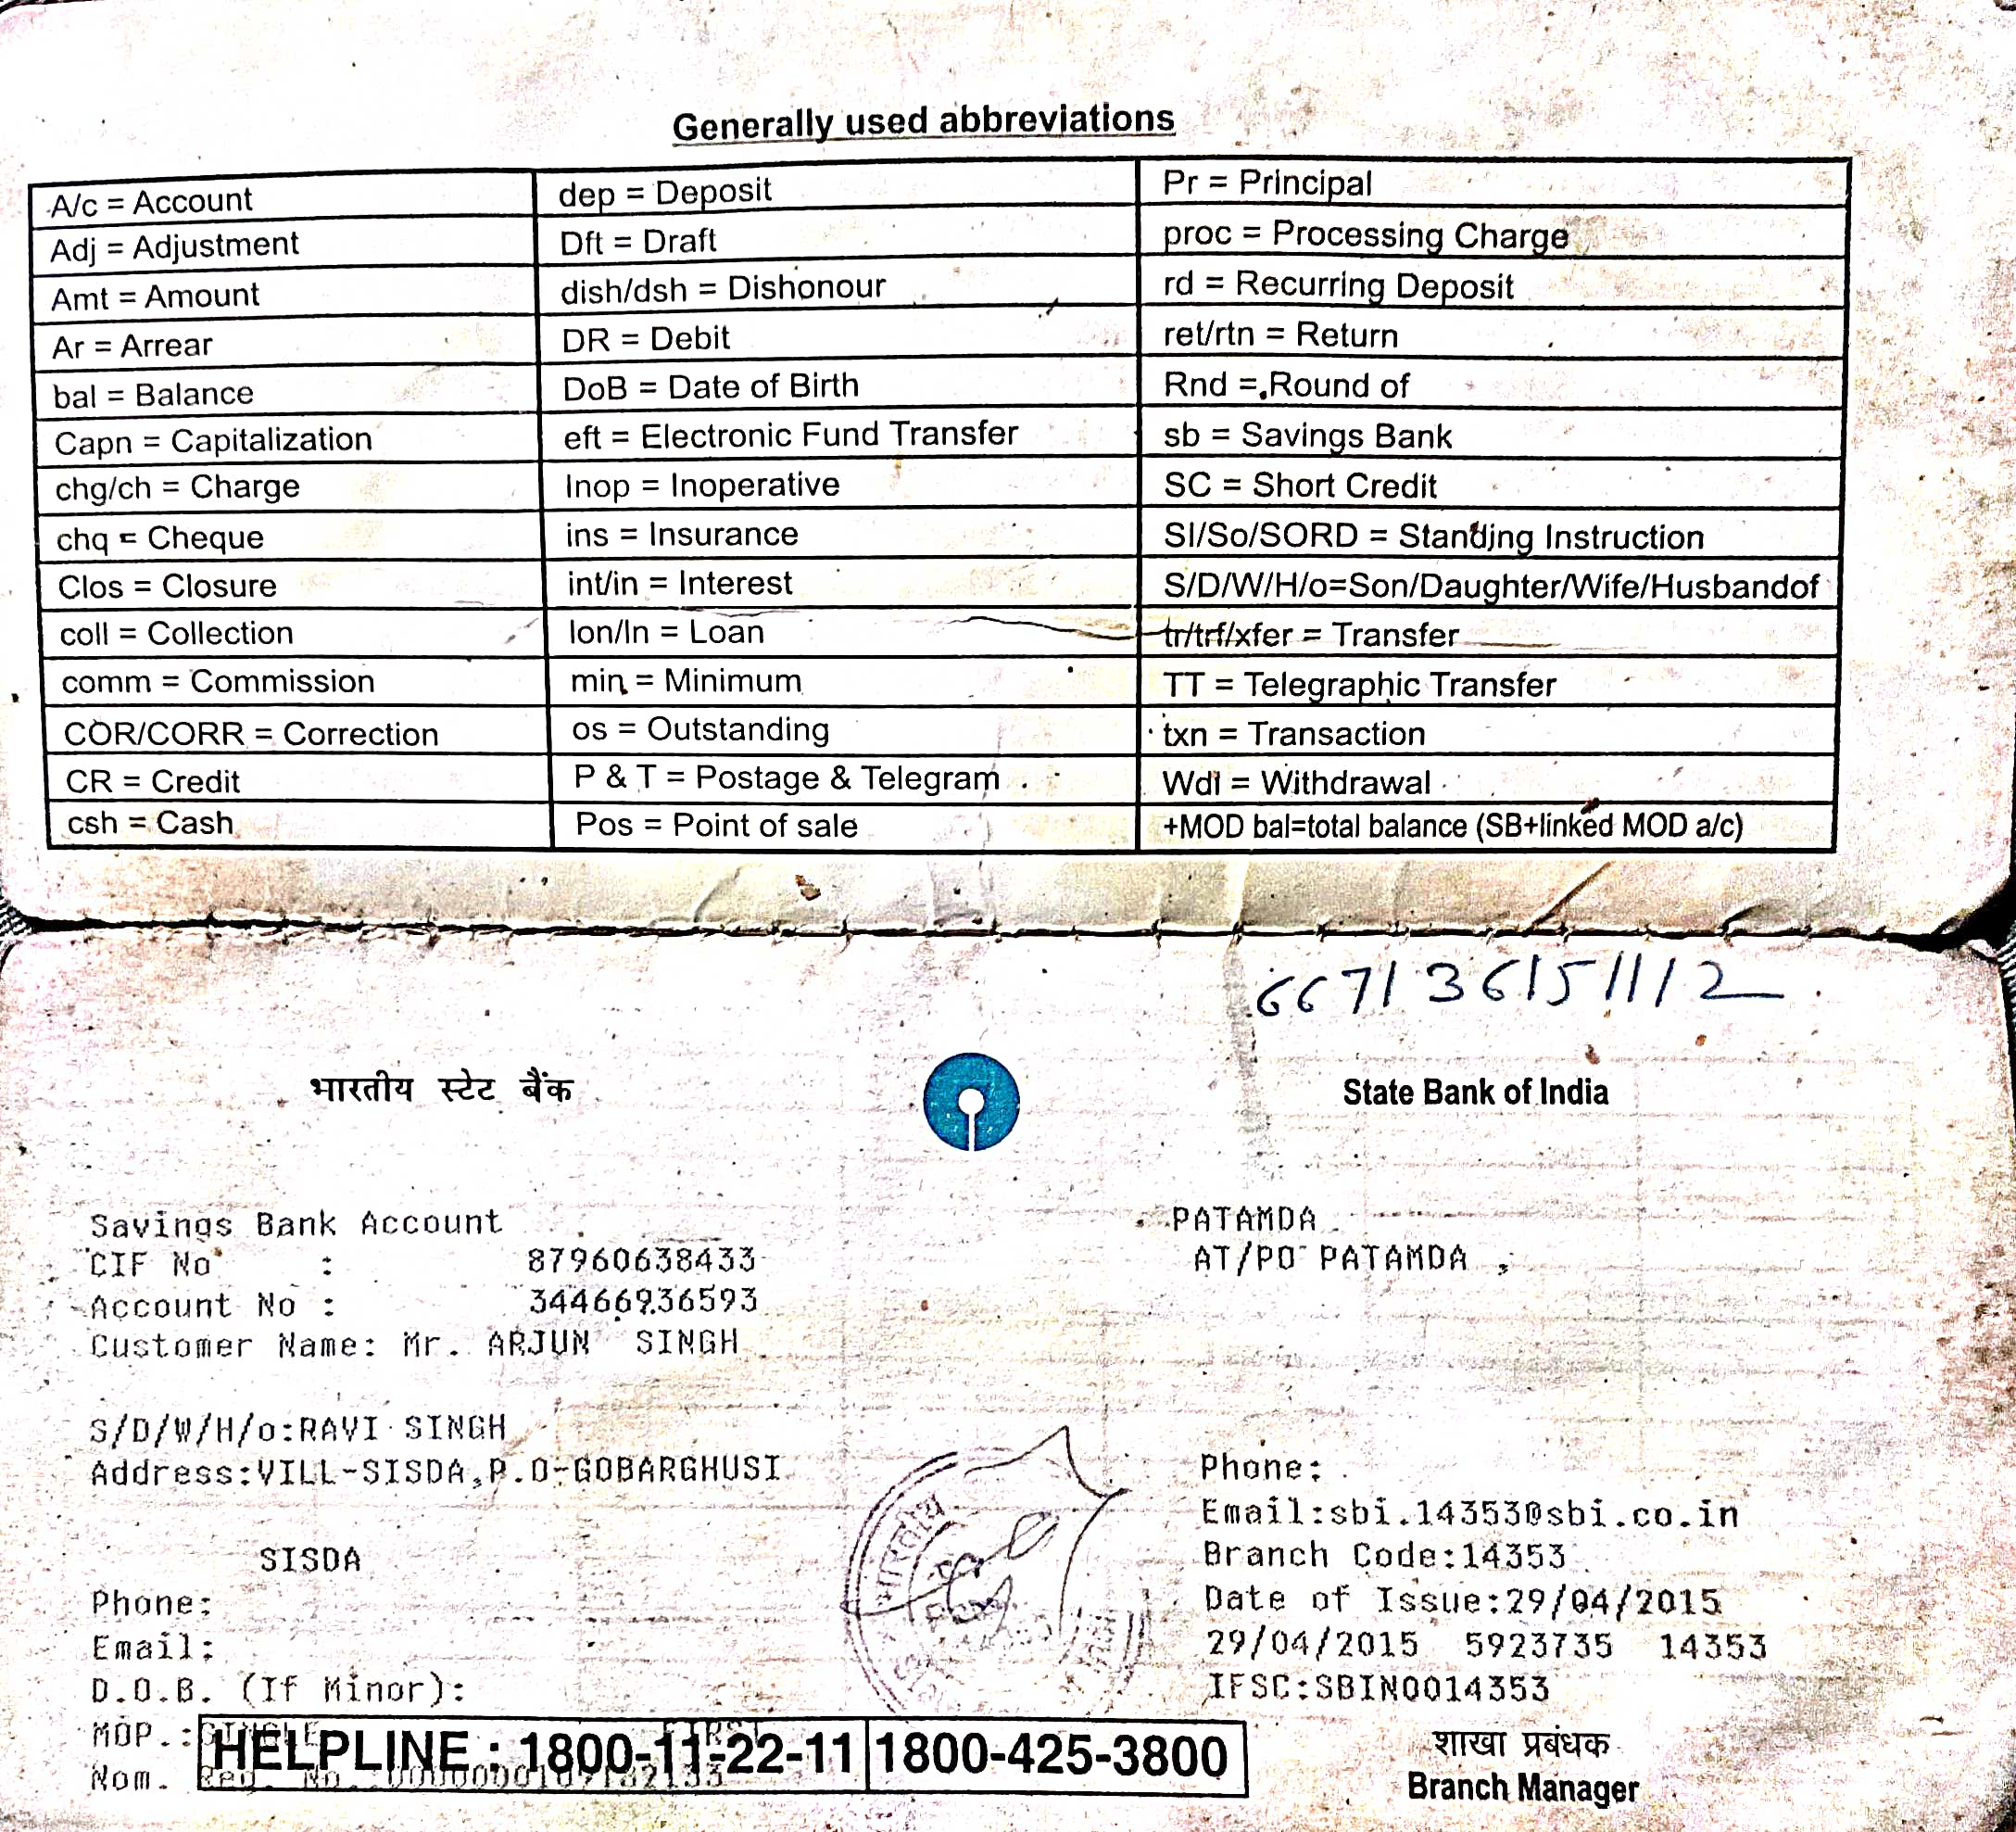 Generally used abbreviations
A/c = Account dep = Deposit Pr = Principal
Adj = Adjustment Dft = Draft proc = Processing Charge
Amt = Amount dish/dsh = Dishonour rd = Recurring Deposit
Ar = Arrear DR = Debit ret/rtn = Return
bal = Balance DoB = Date of Birth Rnd = Round of
Capn = Capitalization eft = Electronic Fund Transfer sb = Savings Bank
chg/ch = Charge Inop = Inoperative SC = Short Credit
chq = Cheque ins = Insurance SI/So/SORD = Standing Instruction
Clos = Closure int/in = Interest S/D/W/H/o=Son/Daughter/Wife/Husbandof
coll = Collection lon/ln = Loan tr/trf/xfer = Transfer
comm = Commission min = Minimum TT = Telegraphic Transfer
COR/CORR = Correction os = Outstanding txn = Transaction
CR = Credit P & T = Postage & Telegram Wdl = Withdrawal
csh = Cash Pos = Point of sale +MOD bal=total balance (SB+linked MOD a/c)
667136151112
भारतीय स्टेट बैंक State Bank of India
Savings Bank Account PATAMDA
CIF No : 87960638433 AT/PO PATAMDA ,
Account No : 34466936593
Customer Name: Mr. ARJUN SINGH
S/D/W/H/o:RAVI SINGH
Address:VILL-SISDA,P.O-GOBARGHUSI Phone:
Email:sbi.14353@sbi.co.in
SISDA Branch Code:14353
Phone: Date of Issue:29/04/2015
Email: 29/04/2015 5923735 14353
D.O.B. (If Minor): IFSC:SBIN0014353
MOP.:SINGLE
HELPLINE : 1800-11-22-11 1800-425-3800 शाखा प्रबंधक
Nom. Reg. No. Branch Manager
भारतीय